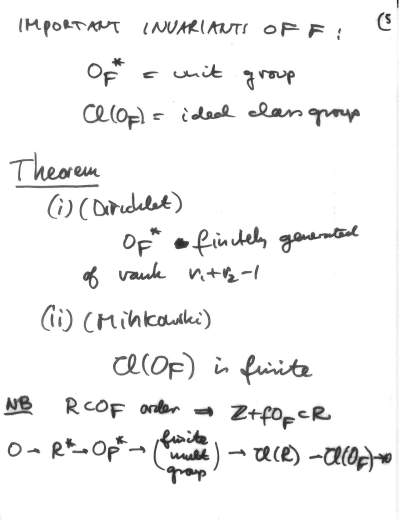 IMPORTANT INVARIANTS OF F : (5
O_F^* = unit group
Cl(O_F) = ideal class group
Theorem
(i) (Dirichlet)
O_F^* finitely generated
of rank r_1+r_2-1
(ii) (Minkowski)
Cl(O_F) is finite
NB R⊂O_F order → Z+fO_F⊂R
O → R^* → O_F^* → (finite mult group) → Cl(R) → Cl(O_F) → 0